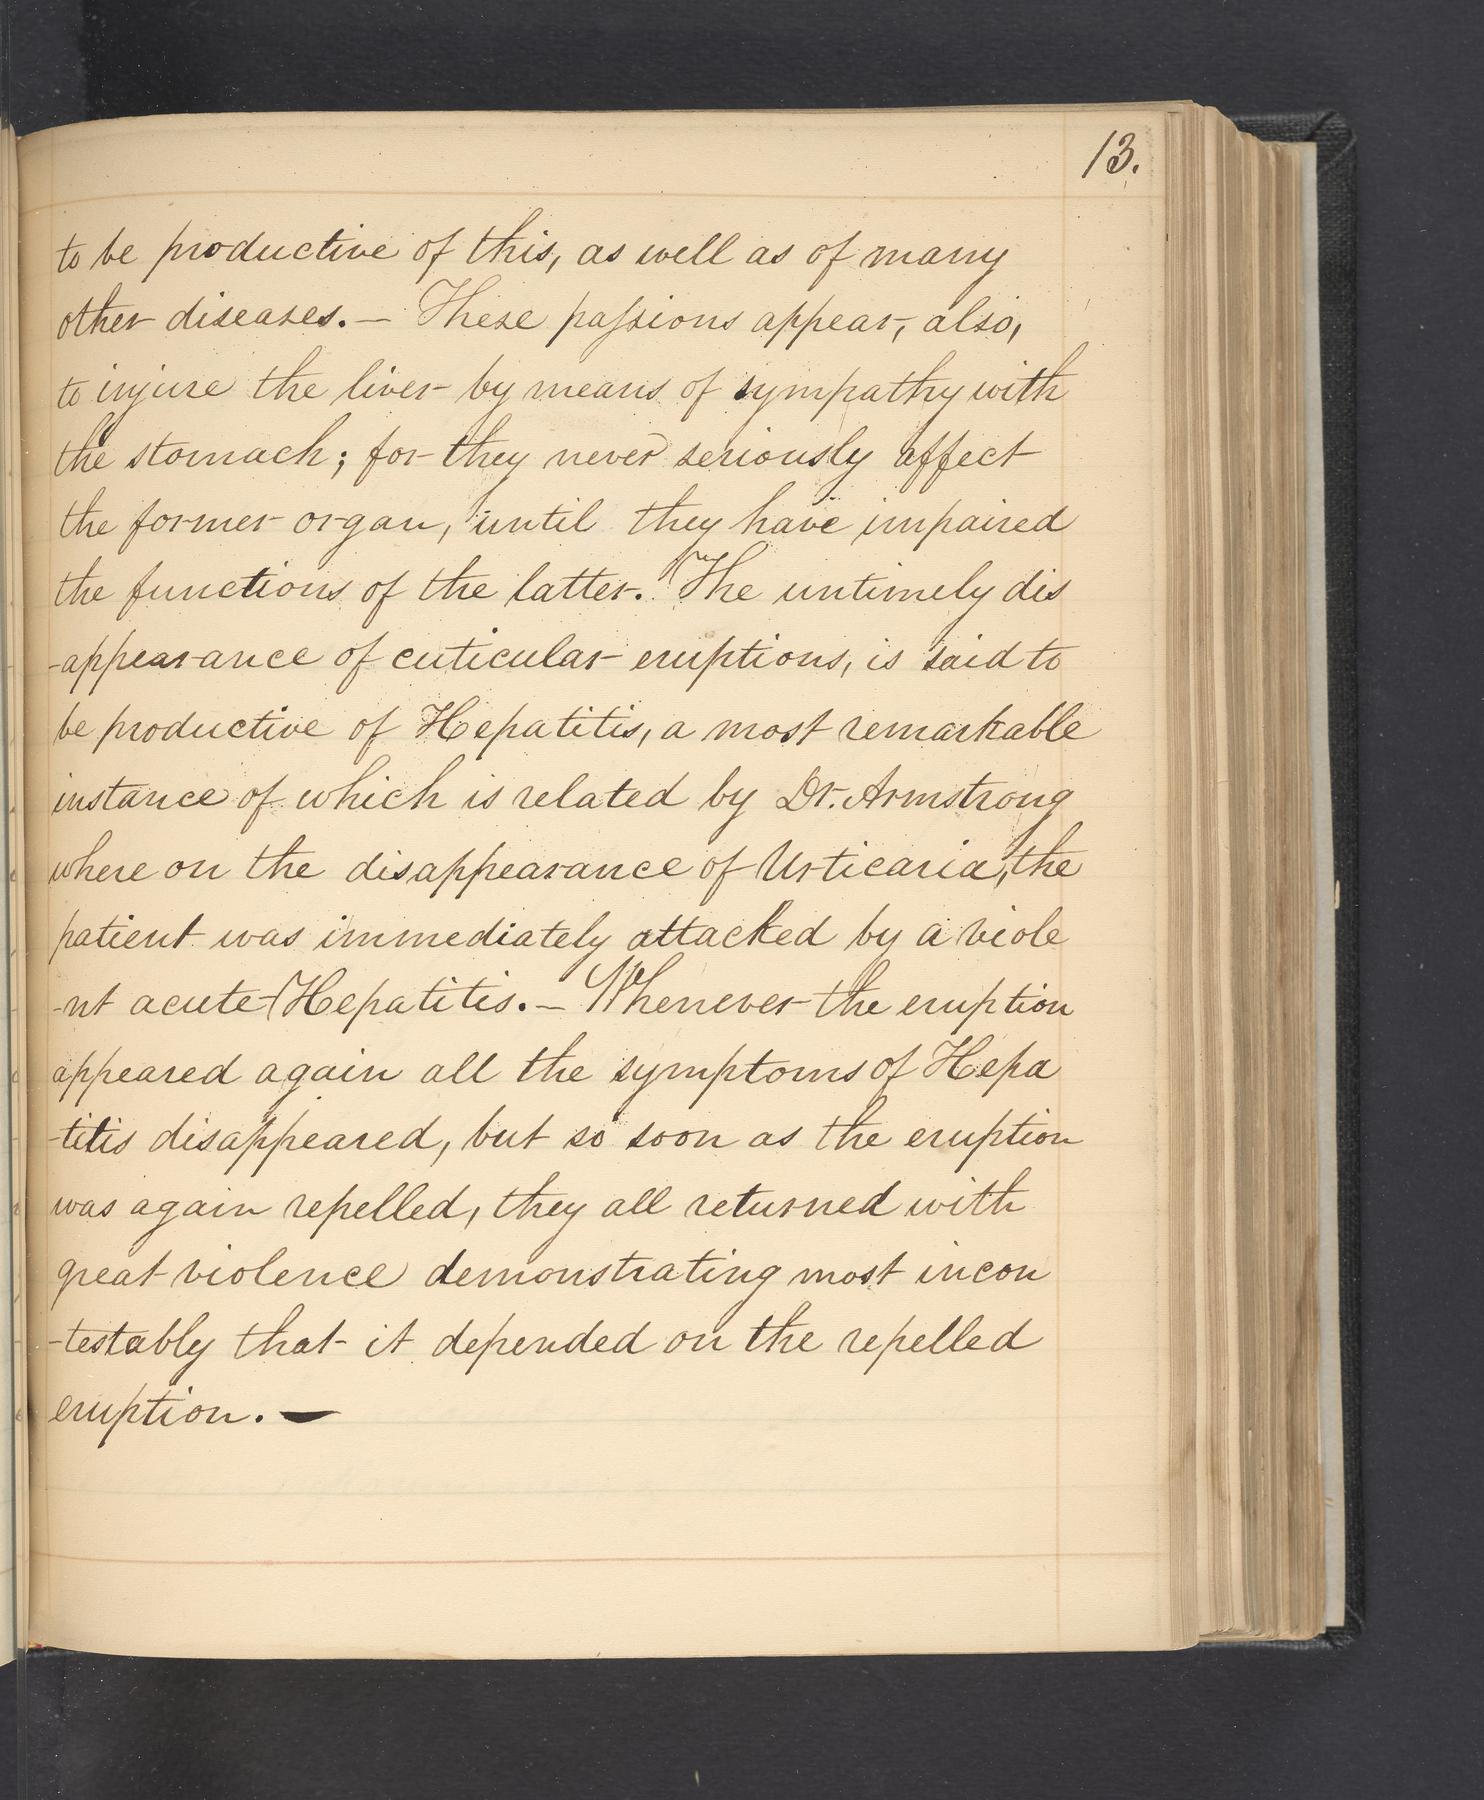 13.
to be productive of this, as well as of many
other diseases. — These paſsions appear, also,
to injure the liver by means of sympathy with
the stomach; for they never seriously affect
the former organ, until they have impaired
the functions of the latter. The untimely dis
-appearance of cuticular eruptions, is said to
be productive of Hepatitis, a most remarkable
instance of which is related by Dr. Armstrong
where on the disappearance of Urticaria, the
patient was immediately attacked by a viole
-nt acute Hepatitis. — Whenever the eruption
appeared again all the symptoms of Hepa
-titis disappeared, but so soon as the eruption
was again repelled, they all returned with
great violence demonstrating most incon
-testably that it depended on the repelled
eruption. —